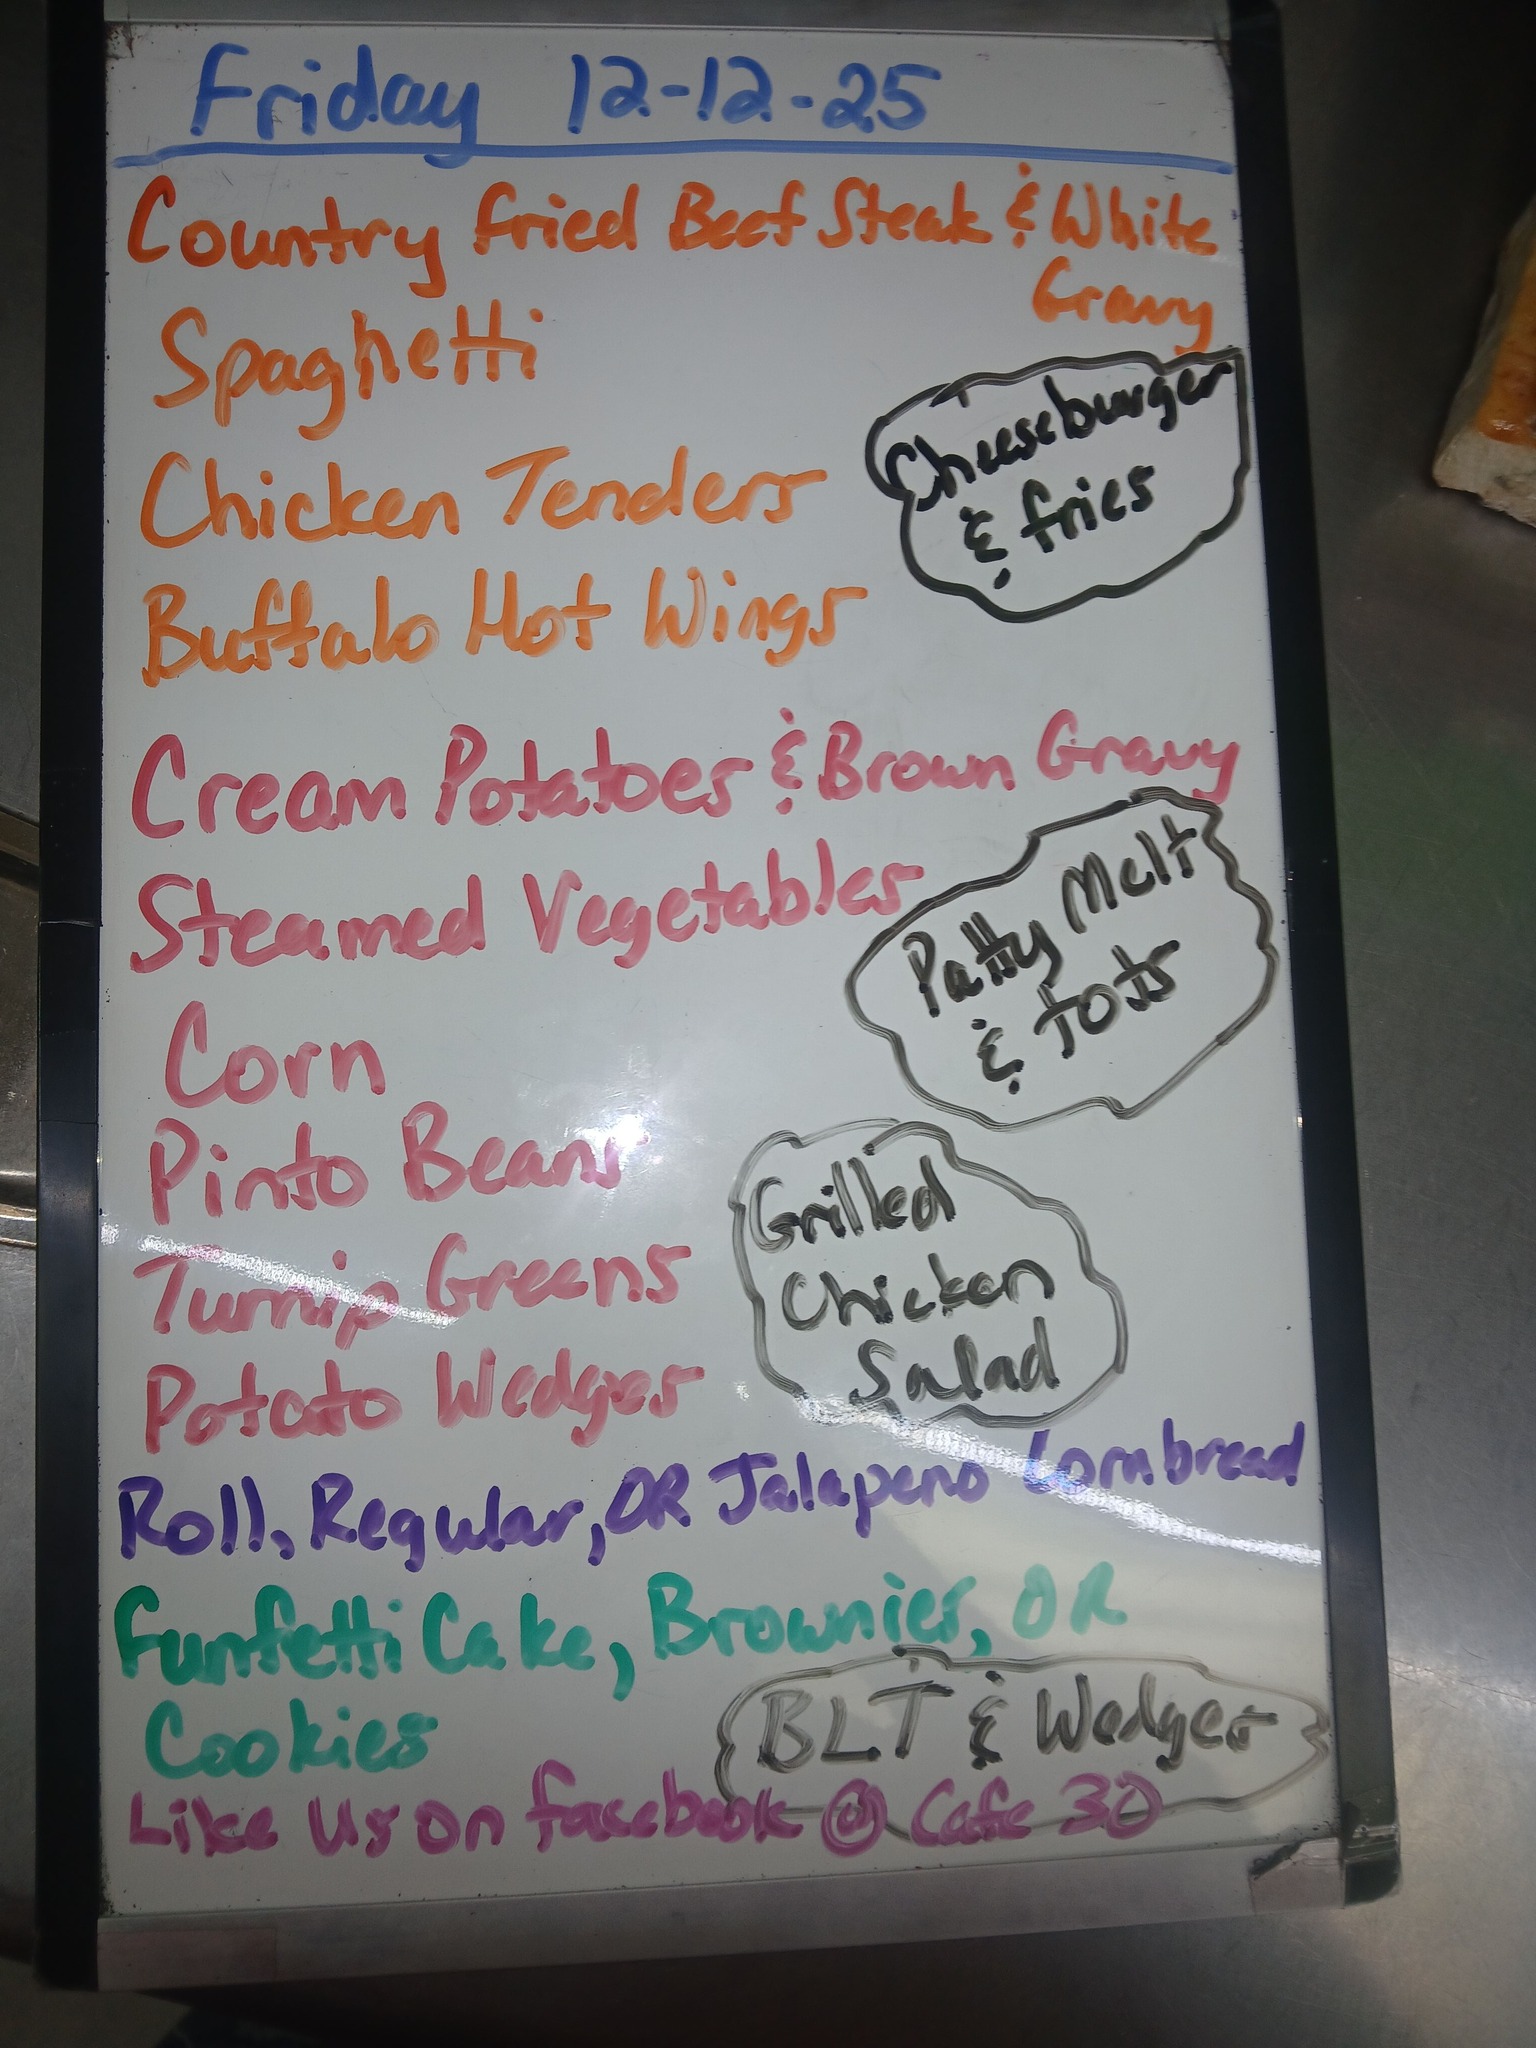 Friday 12-12-25
Country Fried Beef Steak & White
Gravy
Spaghetti
Cheeseburger
& fries
Chicken Tenders
Buffalo Hot Wings
Cream Potatoes & Brown Gravy
Steamed Vegetables
Patty Melt
& tots
Corn
Pinto Beans
Grilled
Chicken
Salad
Turnip Greens
Potato Wedges
Roll, Regular, OR Jalapeno Cornbread
Funfetti Cake, Brownies, OR
Cookies
BLT & Wedges
Like Us on facebook @ Cafe 30